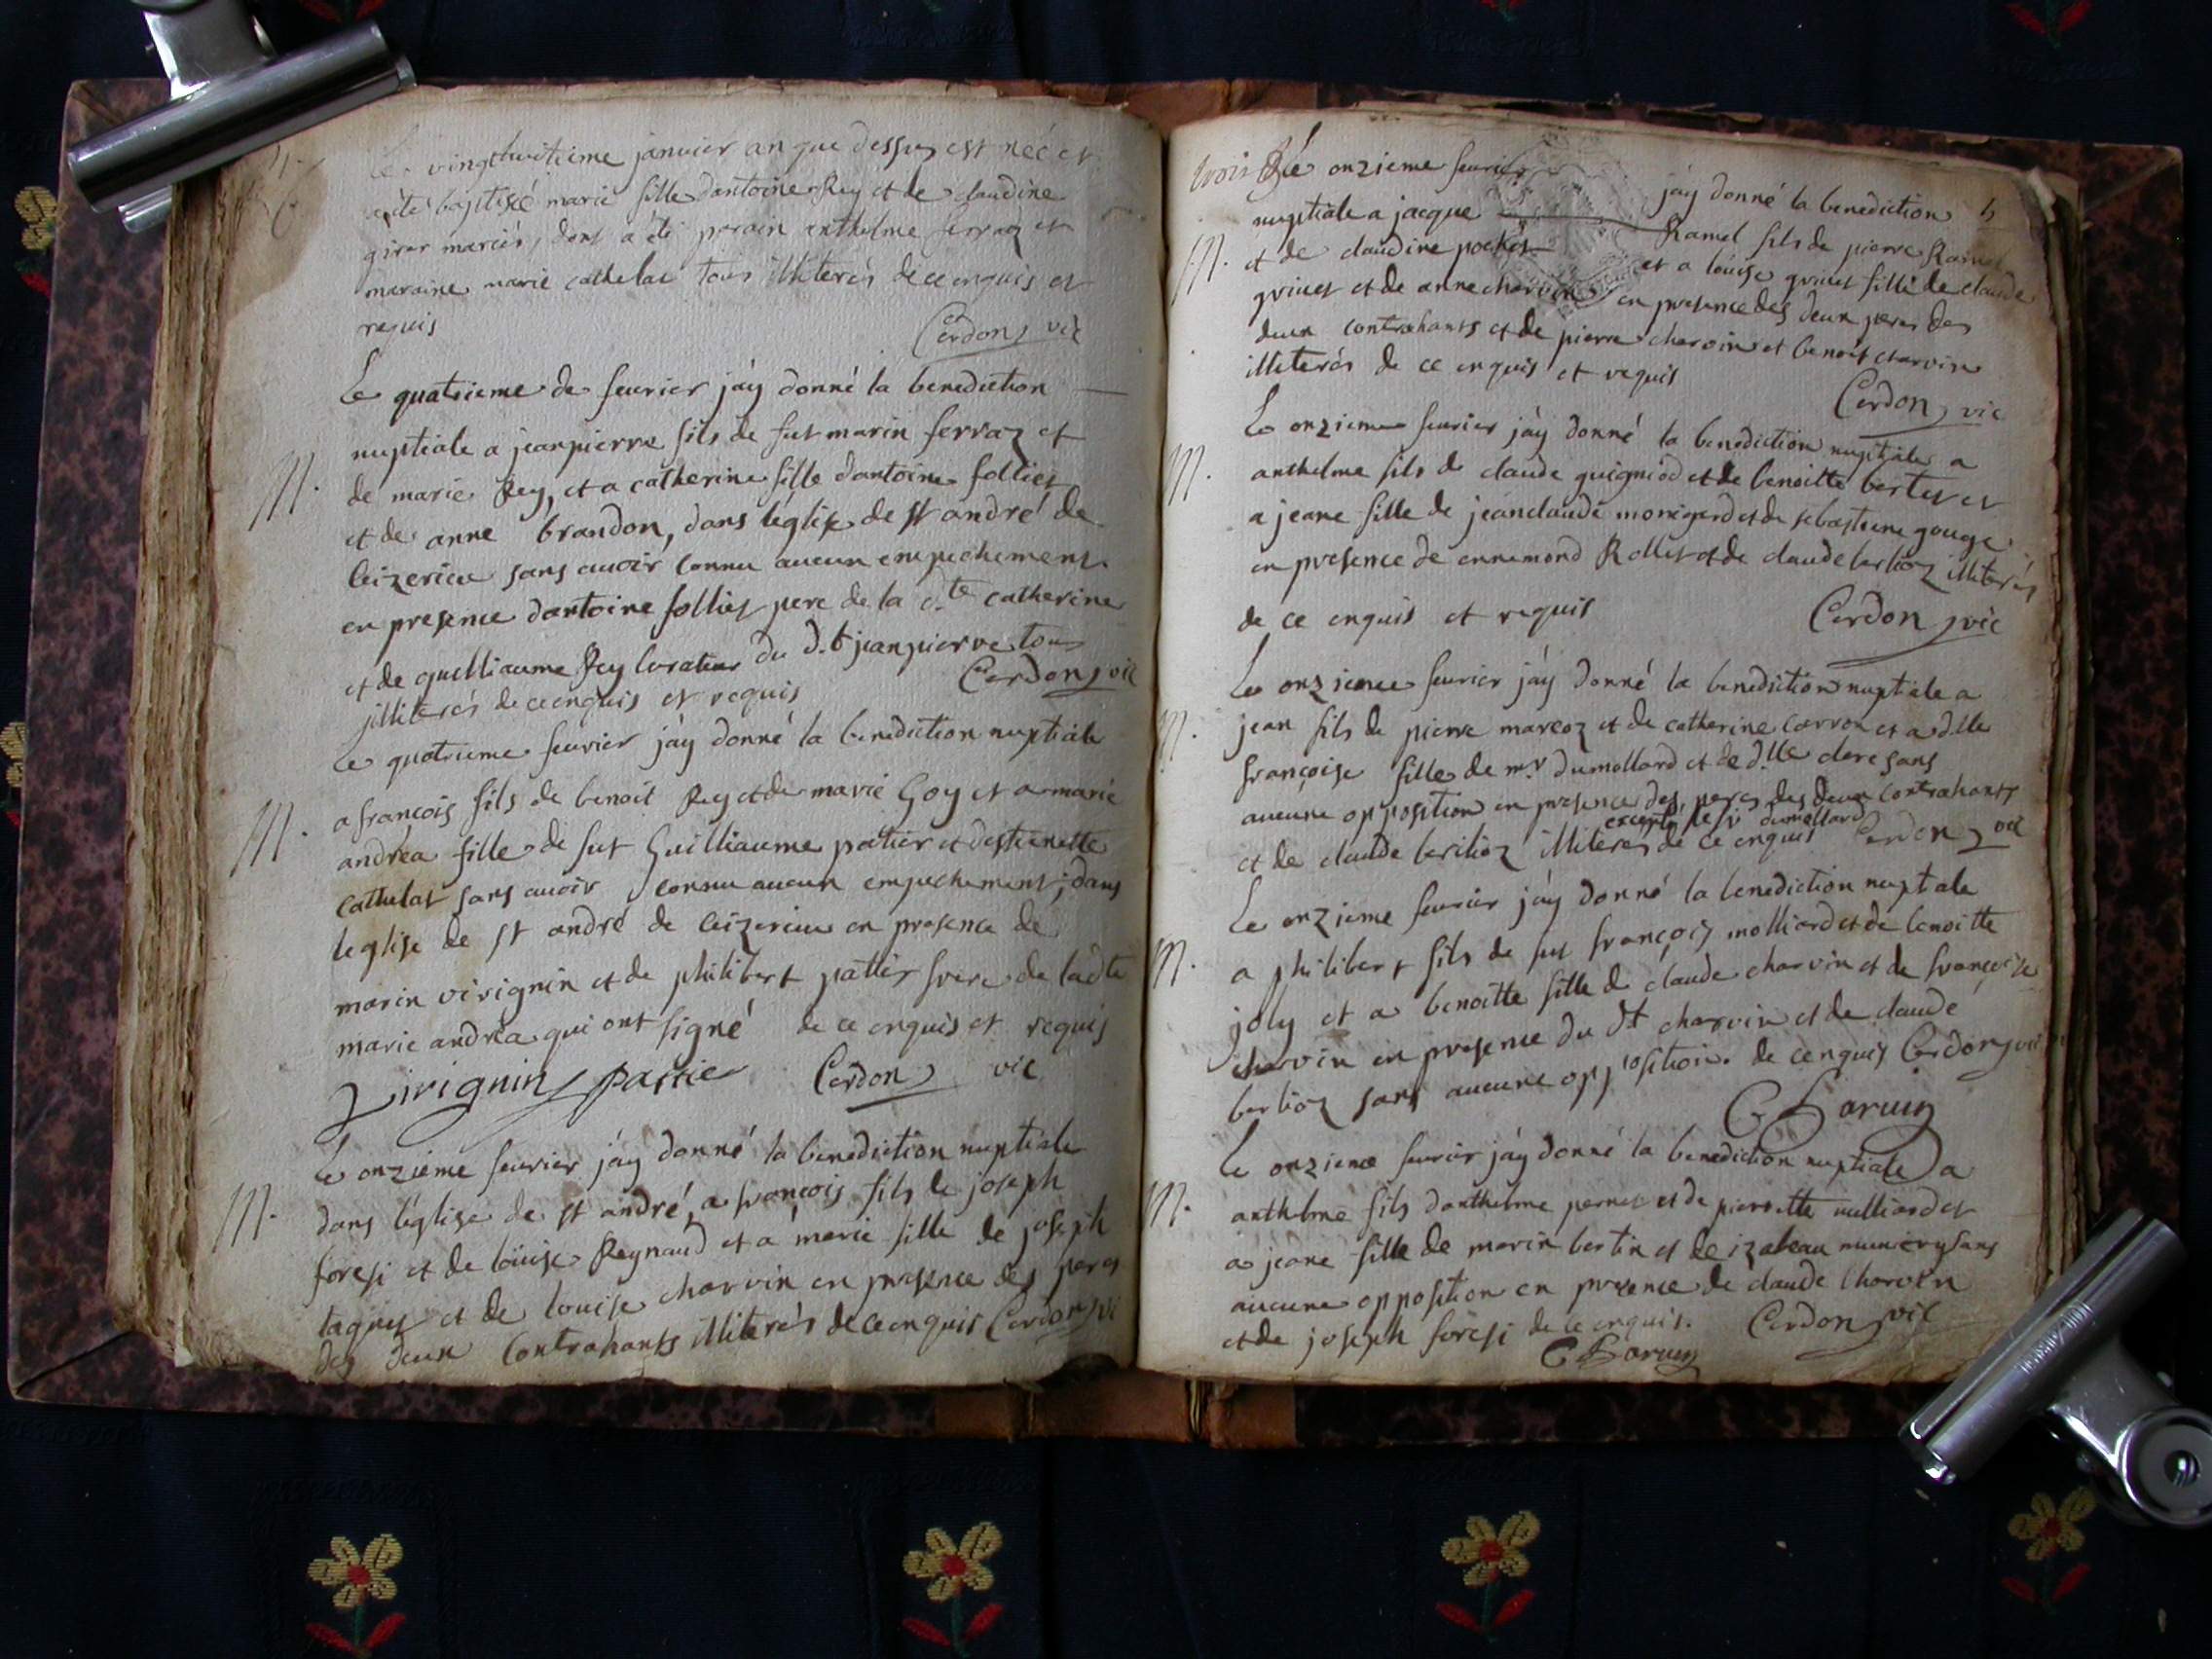 Le vingthuitieme janvier an que dessus est neé et
a été baptiseé marie fille dantoine Rey et de claudine
girer mariés, dont a été parain anthelme ferraz et
maraine marie cathelat tous illiterés de ce enquis et
requis
Cerdon vic
Le quatrieme de feurier jáy donné la benediction
nuptiale a jeanpierre fils de fut marin ferraz et
M.
de marie Rey, et a catherine fille dantoine folliet
et de anne brandon, dans léglise de st andré de
Ceizerieu sans auoir connu aucun empechement
en presence dantoine folliet pere de la d.te catherine
et de guilliaume Rey Curateur du d.t jeanpierre tous
illiterés de ce enquis et requis
Cerdon vic
Le quatrieme feurier jáy donné la benediction nuptiale
M.
a francois fils de benoit Rey et de marie Goy et a marie
andréa fille de fut Guilliaume patier et destienette
cathelat sans auoir connu aucun empechement, dans
leglise de st andré de Ceizerieu en presence de
marin virignin et de philibert pattir frere de ladte
marie andréa qui ont signé de ce enquis et requis
Virignin pattie Cerdon vic
Le onzieme feurier jáy donné la benediction nuptiale
M.
dans léglise de st andré, a françois fils de joseph
foresi et de loüise Reynaud et a marie fille de joseph
tagnet et de louise charvin en presence des peres
des deux Contrahants illiterés de ce enquis Cerdon vi
trois Le onzieme feurier jáy donné la benediction 5
nuptiale a jacque Ramel fils de pierre Ramel
M.
et de claudine et a loüise griuet fille de claude
griuet et de anne charvin en presence des deux peres des
deux contrahants et de pierre charvin et benoit charvin
illiterés de ce enquis et requis
Cerdon vic
Le onzieme feurier jáy donné la benediction nuptiale a
M.
anthelme fils de claude guigniod et de benoitte bertet et
a jeane fille de jeanclaude monigard et de sebastiene gouge
en presence de ennemond Rollet et de claude berlioz illiterés
de ce enquis et requis
Cerdon vic
Le onzieme feurier jáy donné la benediction nuptiale a
M.
jean fils de pierre marcoz et de catherine Carron et a d.lle
françoise fille de m.r dumollard et de d.lle clere sans
aucune opposition en presence des peres des deux contrahants
excepté le sr dumollard
et de claude berlioz illiteres de ce enquis Cerdon vic
Le onzieme feurier jáy donné la benediction nuptiale
M.
a philibert fils de fut françois molliard et de benoitte
joly et a benoitte fille de claude charvin et de françoise
charvin en presence du dt charvin et de claude
berlioz sans aucune opposition. de ce enquis Cerdon vic
C Charuin
Le onzieme feurier jáy donné la benediction nuptiale a
M.
anthelme fils danthelme pernet et de pierrette milliard et
a jeane fille de marin bertin et de izabeau muniery sans
aucune opposition en presence de claude Charvin
et de joseph foresi de ce enquis. Cerdon vic
C Charuin